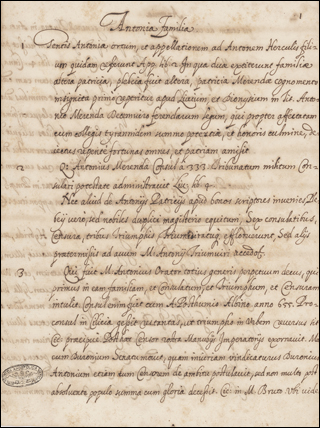 1
Antonia Familia
1 Gentis Antoniæ ortum, et appellationem ad Antonem Herculis fili-
um quidam referunt App. lib. 2 fin qua duæ extiterunt familiæ
altera patricia, plebeia fuit altera, patricia Merenda cognomento
insignita primo reperitur apud Livium, et Dionysium in Tit. Anto-
nio Merenda Decemviro ferendarum legum, qui propter affectatam
cum collegis tyrannidem summa potestate, et honoris culmine, de-
iectus repente fortunas omnes, et patriam amisit.
2 Q. Antonius Merenda Consul a 333 Tribunatum militum Con-
sulari potestate administravit Liv. lib. 4
Nec aliud de Antonijs Patricijs apud bonos scriptores invenies, Ple-
beij vero, sed nobiles duplici magisterio equitum, sex consulatibus,
Censura, tribus Triumphis, Triumviratuq. effloruerunt, sed alijs
prætermissis ad avum M. Antonij Triumviri accedo.
3 fuit M. Antonius Orator totius generis perpetuum decus, qui
primus in eam familiam, et Consulatum, et Triumphum, et Censuram
intulit. Consulem egit cum A. Posthumio Albino anno 655. Pro-
consul in Cilicia gessit et triumpho in Urbem invectus est
præcipue Censor rostra Manubijs Imperatorijs exornavit. M.
cum Duronium Senatu movit, quam iniuriam vindicaturus Duronius
Antonium etiam tum Censorem de ambitu postulavit, sed non multo post
absolutus populo summa cum gloria decessit. Cic. in M. Bruto Ubi vide